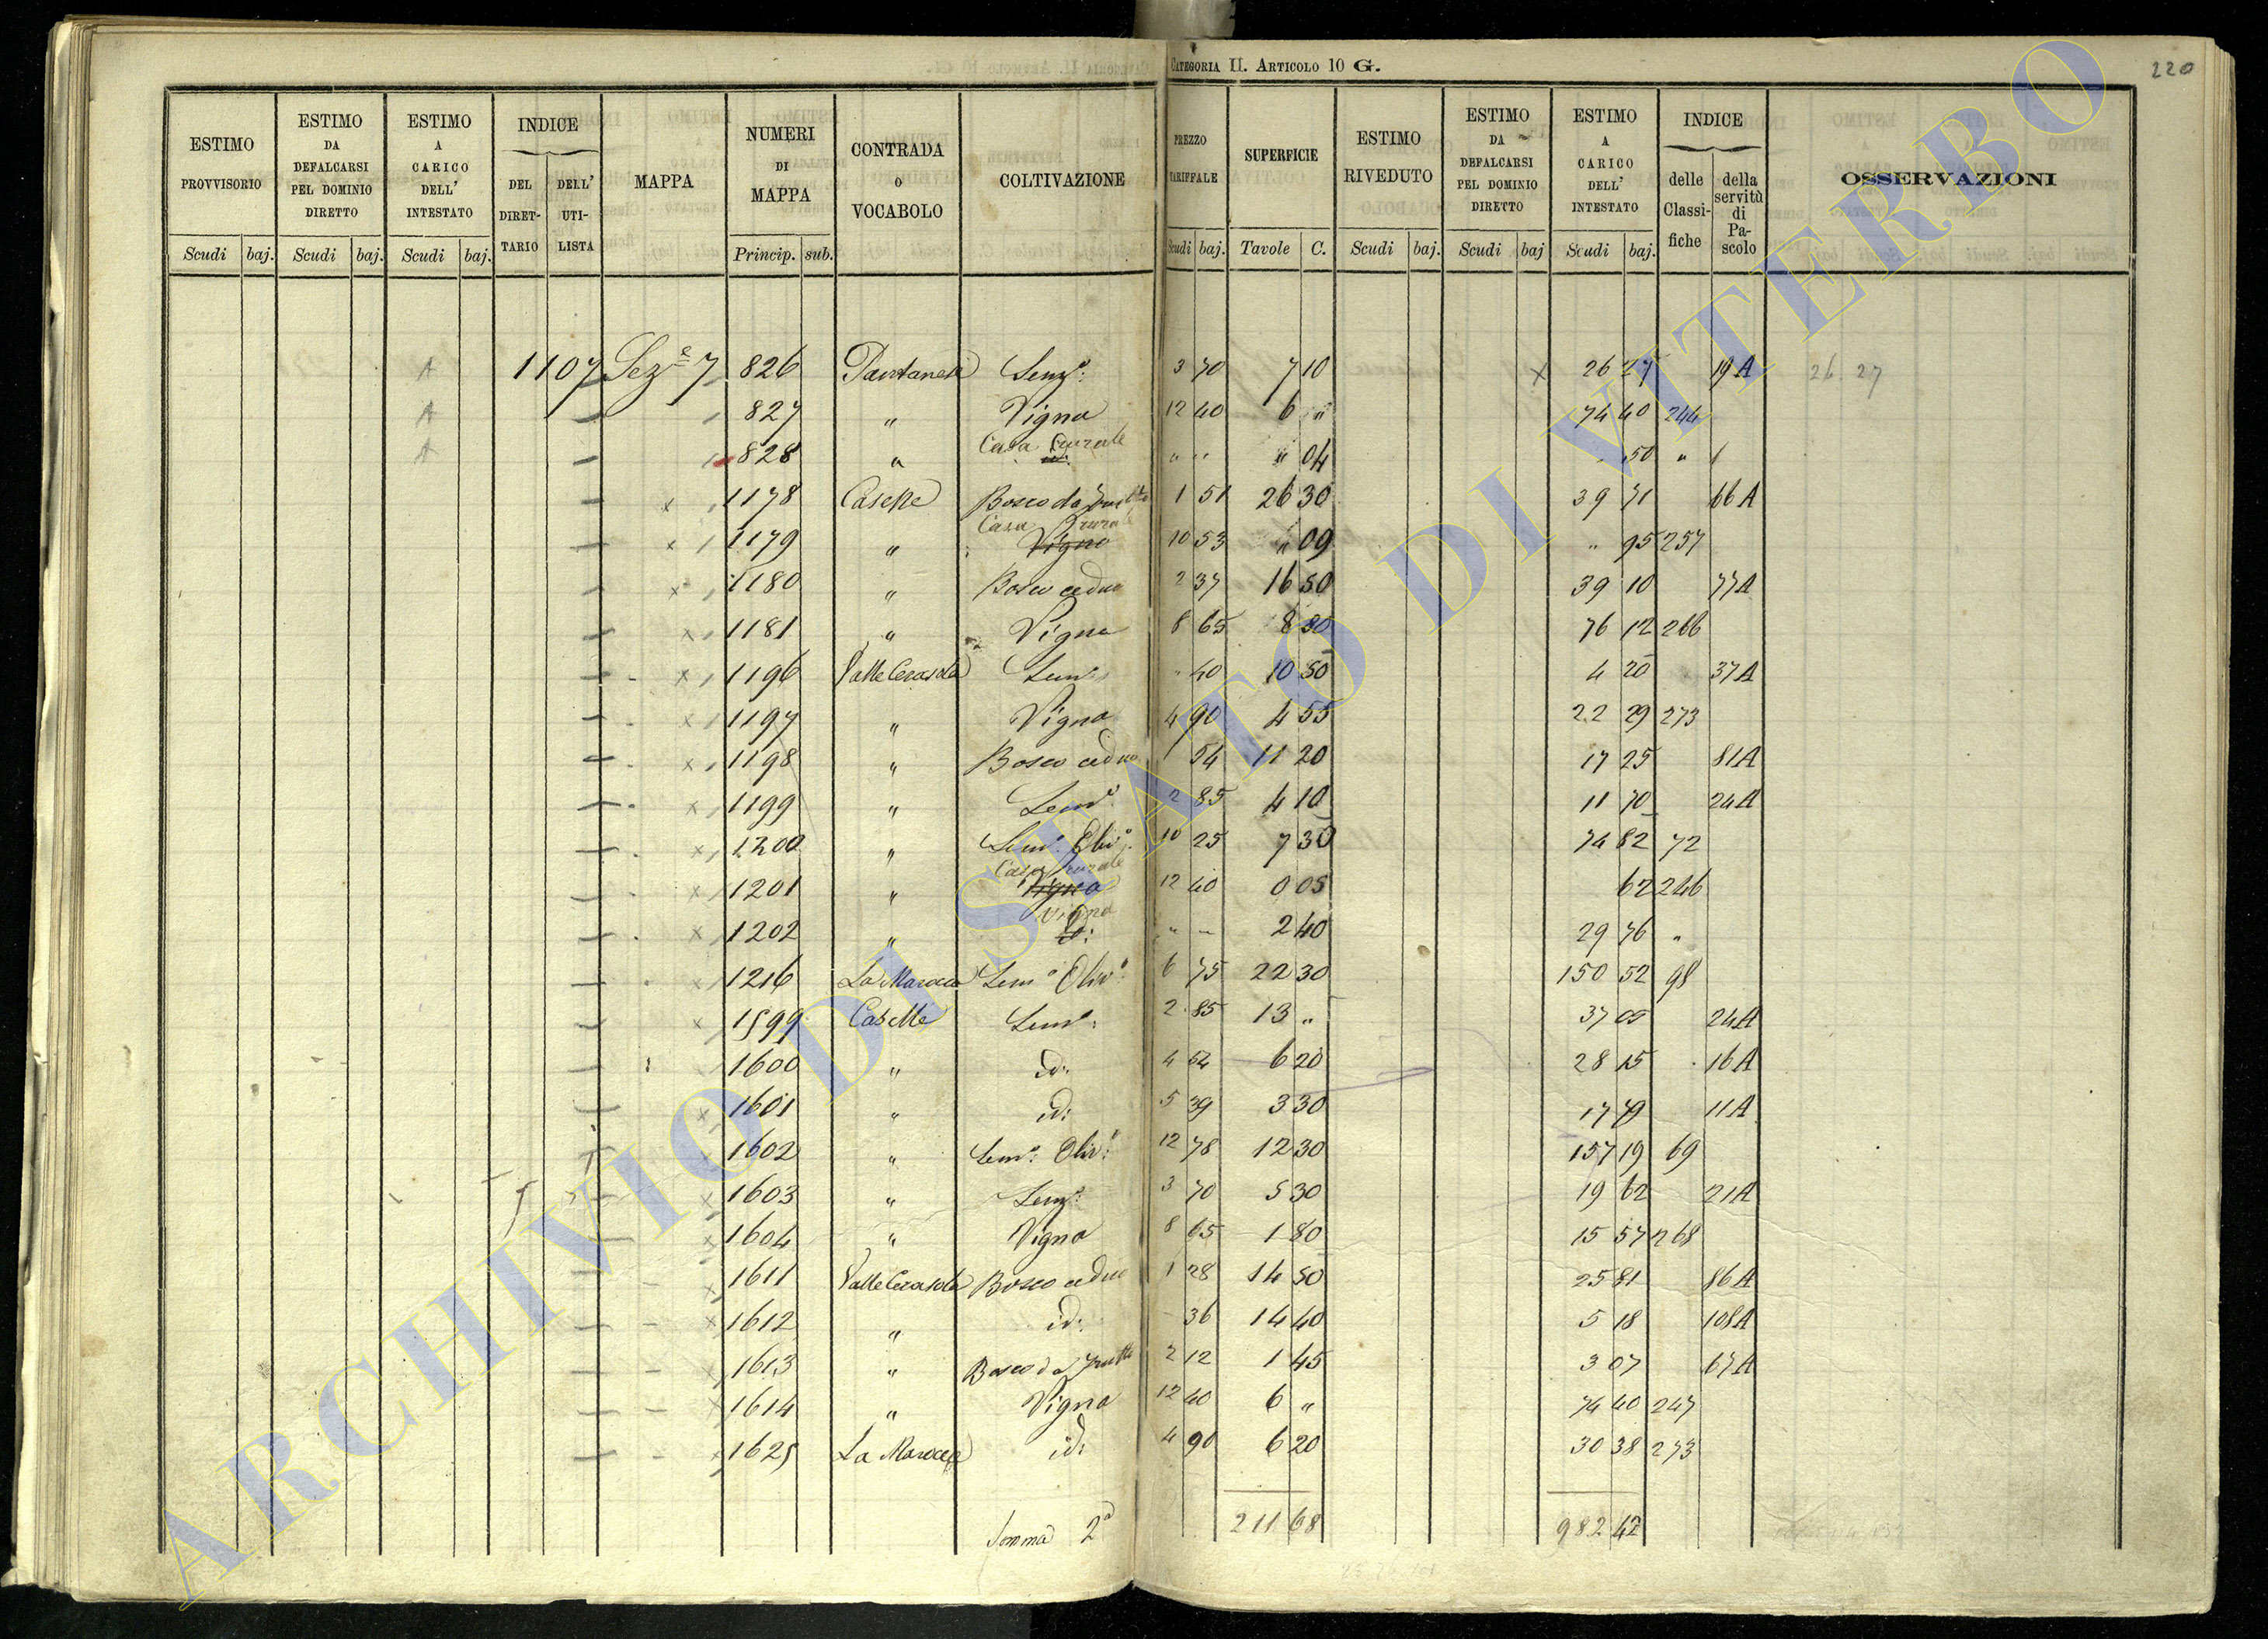 CATEGORIA II. ARTICOLO 10 G.
220
ESTIMO PROVVISORIO
ESTIMO DA DEFALCARSI PEL DOMINIO DIRETTO
ESTIMO A CARICO DELL' INTESTATO
INDICE
DEL DIRET-TARIO
DELL' UTI-LISTA
MAPPA
NUMERI DI MAPPA
CONTRADA O VOCABOLO
COLTIVAZIONE
PREZZO TARIFFALE
SUPERFICIE
ESTIMO RIVEDUTO
ESTIMO DA DEFALCARSI PEL DOMINIO DIRETTO
ESTIMO A CARICO DELL' INTESTATO
INDICE
delle Classi-fiche
della servitù di Pa-scolo
OSSERVAZIONI
Scudi baj. Scudi baj. Scudi baj. Princip. sub. Scudi baj. Tavole C. Scudi baj. Scudi baj Scudi baj.
A 1107 Sez.e 7 826 Pantanese Semo: 3 70 7 10 X 26 27 19A 26 27
A 827 " Vigna 12 40 6 " 74 40 244
A 828 " Casa Rurale id: " " " 04 50 "
x 1178 Caselle Bosco da frutto 1 51 26 30 39 71 66A
x 1179 " Casa Rurale Vigna 10 53 " 09 " 95 257
x 1180 " Bosco ceduo 2 37 16 50 39 10 77A
x 1181 " Vigna 8 65 8 80 76 12 266
x 1196 Valle Cerasola Semo: 40 10 50 4 20 37A
x 1197 " Vigna 4 90 4 55 22 29 273
x 1198 " Bosco ceduo 1 54 11 20 17 25 81A
x 1199 " Semo: 2 85 4 10 11 70 24A
x 1200 " Semo: Olivo: 10 25 7 30 74 82 72
x 1201 " Casa rurale Vigna 12 40 0 05 62 246
x 1202 " Vigna id: " " 2 40 29 76 "
x 1216 La Marocca Semo Olivo: 6 75 22 30 150 52 98
x 1599 Caselle Semo: 2 85 13 " 37 05 24A
1600 " id: 4 54 6 20 28 15 16A
x 1601 " id: 5 39 3 30 17 79 11A
x 1602 " Semo: Olivo: 12 78 12 30 157 19 69
x 1603 " Semo: 3 70 5 30 19 62 21A
x 1604 " Vigna 8 65 1 80 15 57 268
x 1611 Valle Cerasola Bosco ceduo 1 28 14 50 25 81 86A
x 1612 " id: 36 14 40 5 18 108A
1613 " Bosco da frutto 2 12 1 45 3 07 67A
x 1614 " Vigna 12 40 6 " 74 40 247
x 1625 La Marocca id: 4 90 6 20 30 38 273
Somma 2a 211 68 982 42
ARCHIVIO DI STATO DI VITERBO